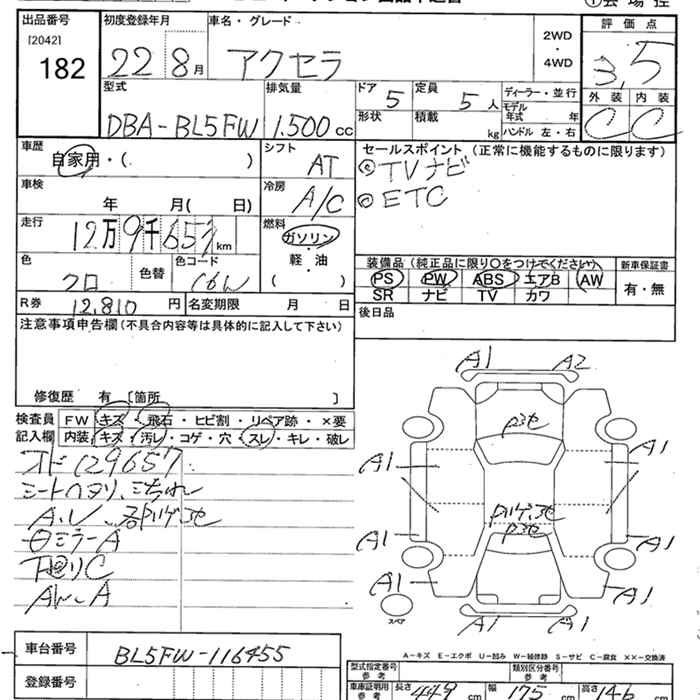 出品番号 初度登録年月 車名・グレード 評価点
[2042] 2WD
182 22年 8月 アクセラ ・ 3.5
4WD
型式 排気量 ドア 5 定員 5人 ディーラー・並行 外装 内装
モデル年式 年
DBA-BL5FW 1.500cc 形状 積載 kg ハンドル 左・右 C C
車歴 シフト セールスポイント (正常に機能するものに限ります)
自家用・( ) AT ◎TVナビ
車検 冷房 ◎ETC
年 月( 日) A/C
走行 燃料
12万9千657km ガソリン
色 色替 色コード 軽・油 装備品 (純正品に限り〇をつけてください) 新車保証書
クロ 16W ( ) PS PW ABS エアB AW 有・無
R券 12,810円 名変期限 月 日 SR ナビ TV カワ
注意事項申告欄(不具合内容等は具体的に記入して下さい) 後日品
修復歴 有 [箇所 ]
A1 A2
検査員 FW キズ・飛石・ヒビ割・リペア跡・×要
記入欄 内装・キズ・汚レ・コゲ・穴・スレ・キレ・破レ
オド129657
A1 A1
A1 A1
A1 A1
AW-A
スペア
A-キズ E-エクボ U-凹み W-補修跡 S-サビ C-腐食 ××-交換済
車台番号 BL5FW-116455
型式指定番号 参考 類別区分番号 参考
登録番号 車庫証明用 参考 長さ 449cm 幅 175cm 高さ 146cm